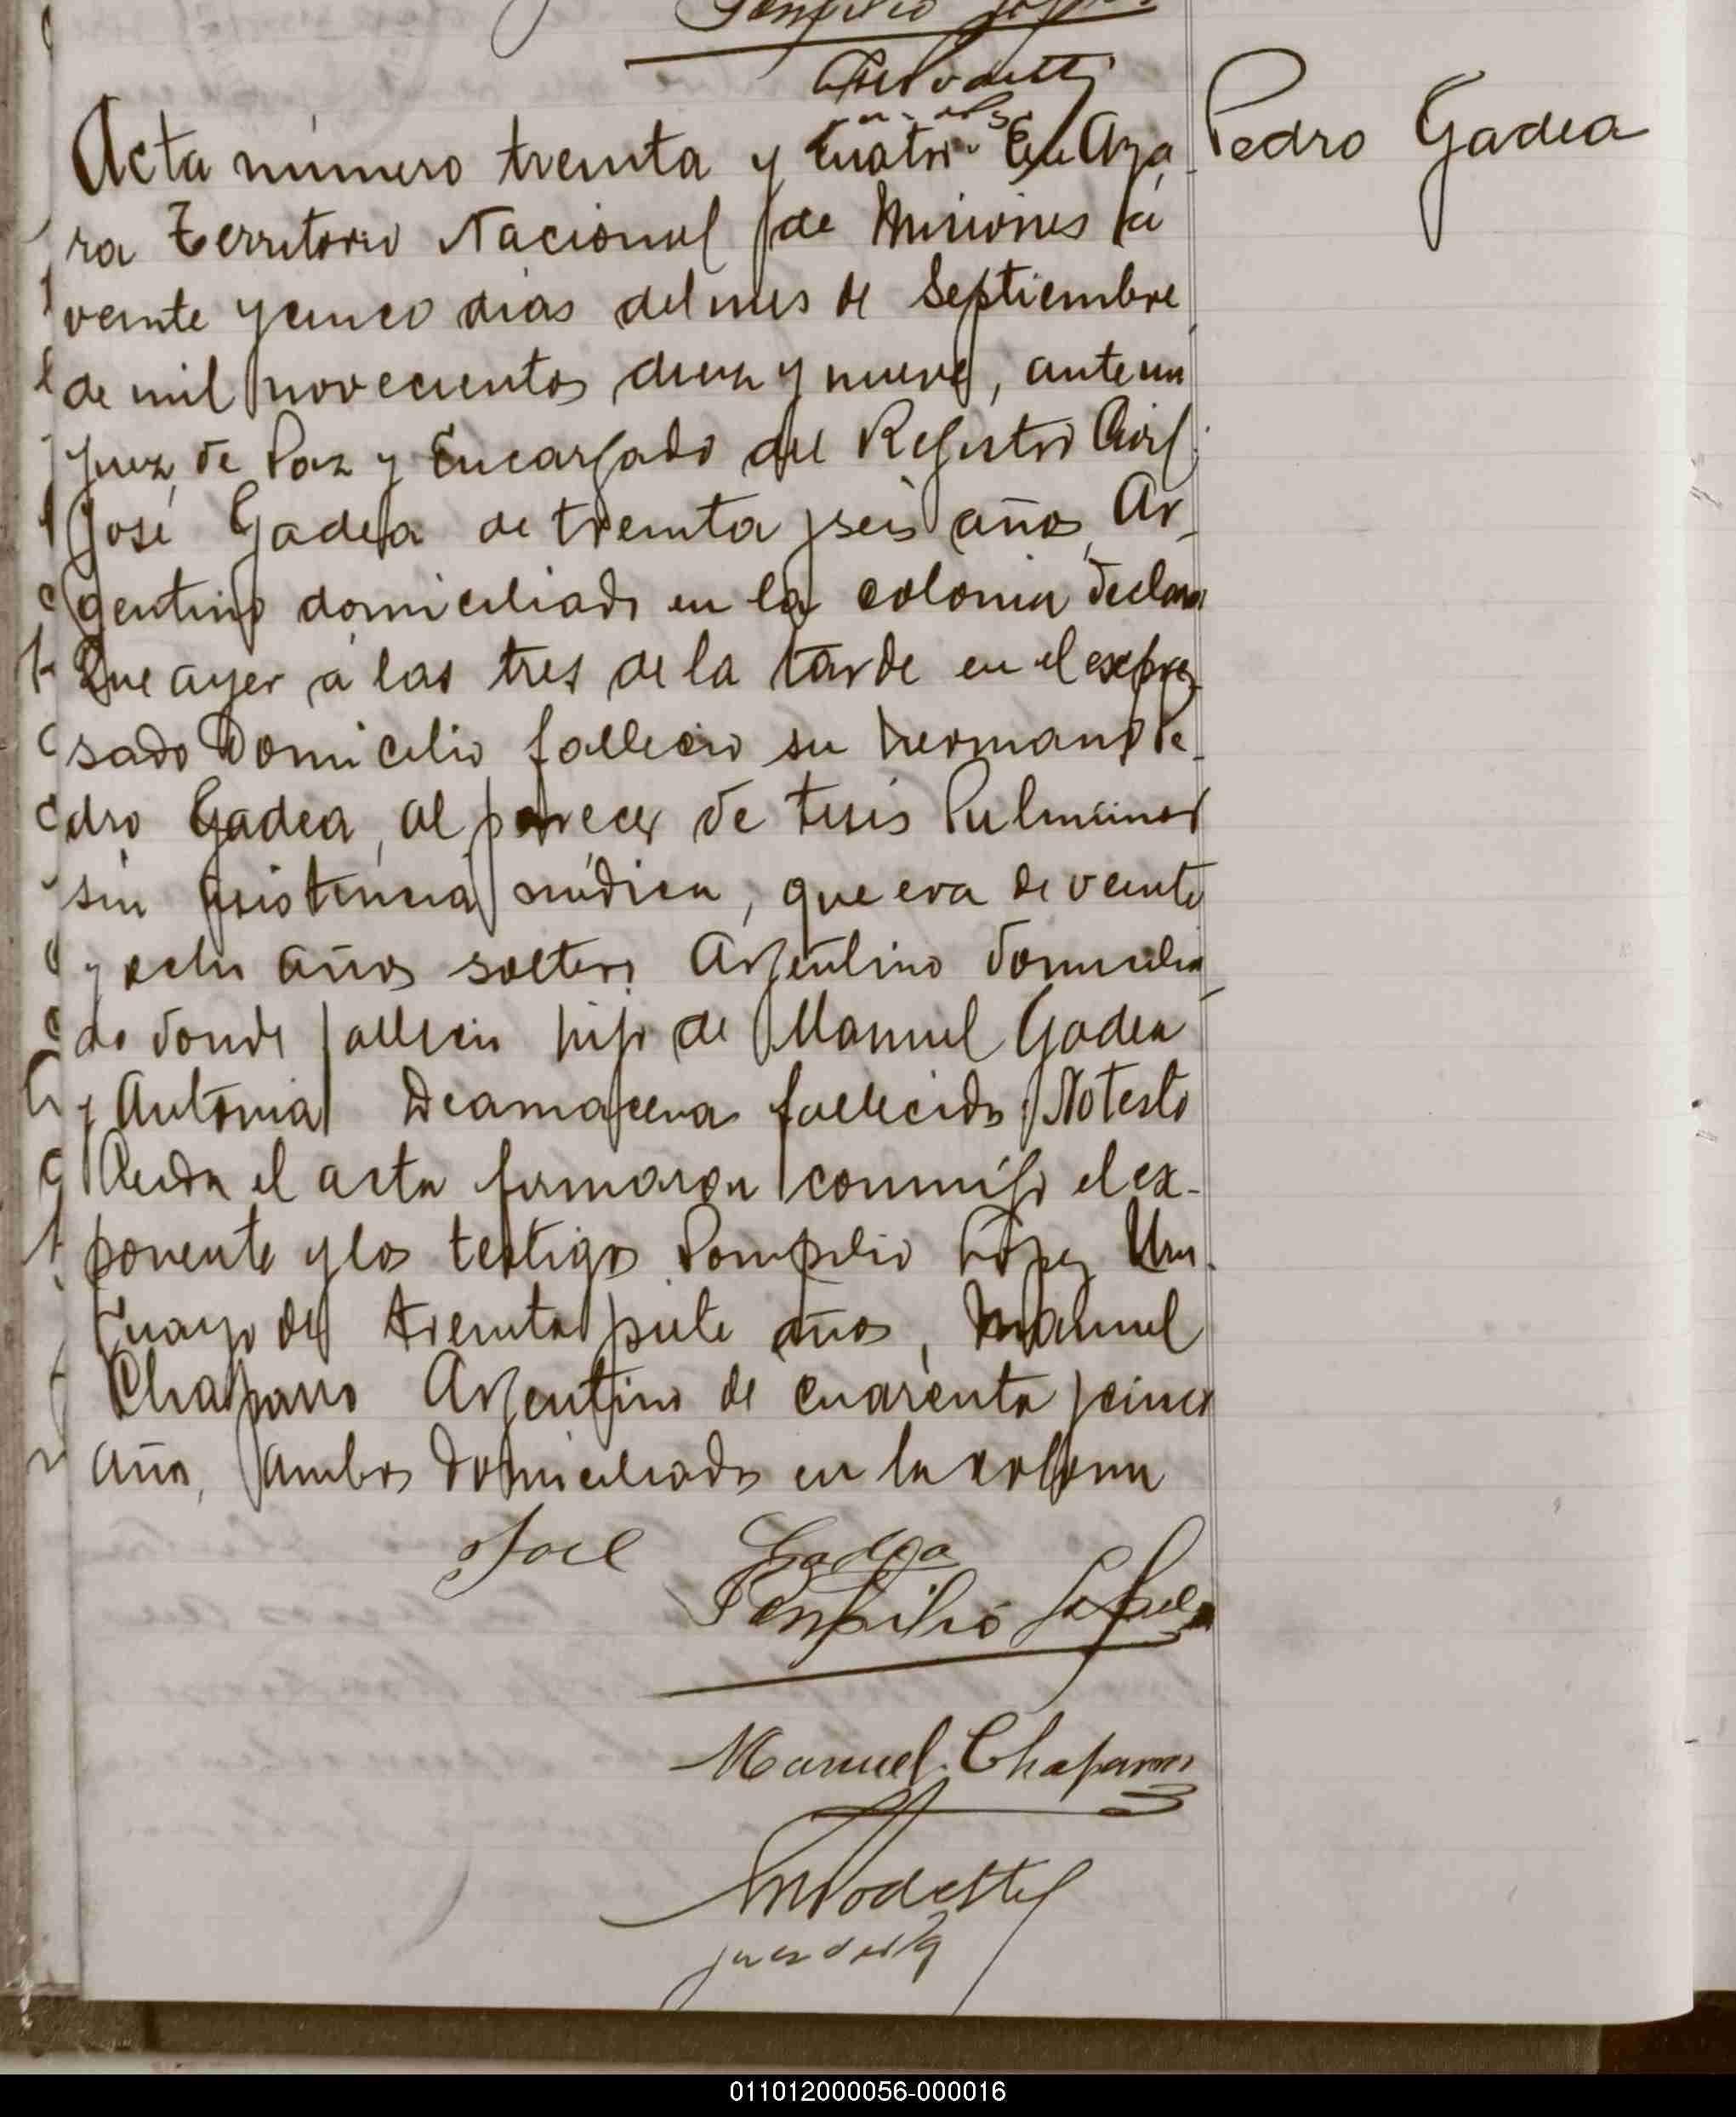 Pompilio
Acta número treinta y cuatro En Aza Pedro Gadea
ra Territorio Nacional de Misiones á
veinte y cinco dias del mes de Septiembre
de mil novecientos diez y nueve, ante mi
Juez de Paz y Encargado del Registro Civil
José Gadea de treinta y seis años, Ar-
gentino domiciliado en la colonia declara
Que ayer á las tres de la tarde en el expre-
sado Domicilio fallecio su hermano Pe-
dro Gadea, al parecer de tisis Pulmonar
sin asistencia médica, que era de veinte
y ocho años soltero Argentino domicilia
do donde fallecio hijo de Manuel Gadea
y Antonia fallecidos No testo
Leida el acta firmaron conmigo el ex-
ponente y los testigos Pompilio López Uru-
guayo de treinta y siete años, Manuel
Chaparro Argentino de cuarenta y cinco
años, ambos domiciliados en la colonia
José Gadea
Pompilio
Manuel Chaparro
juez de Paz
011012000056-000016